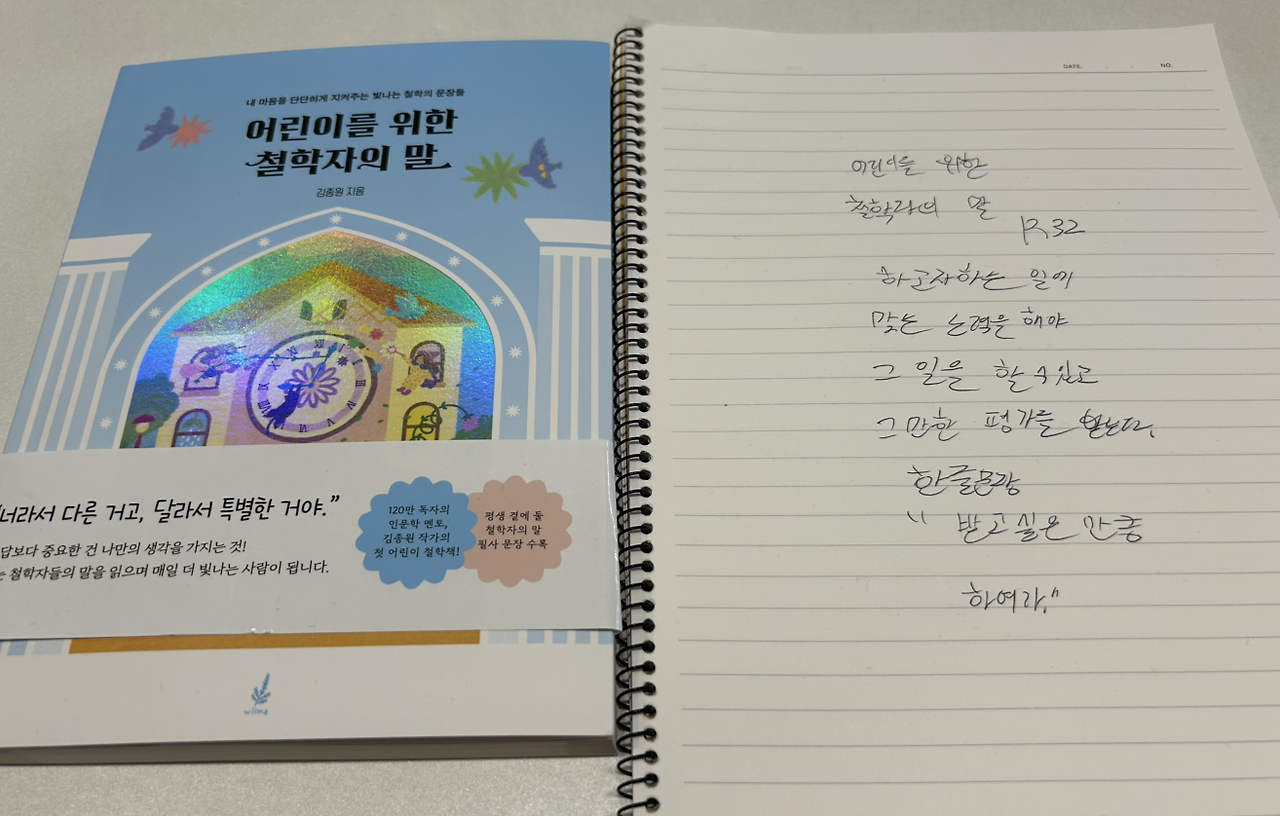 내 마음을 단단하게 지켜주는 빛나는 철학의 문장들
어린이를 위한
철학자의 말
김종원 지음
너라서 다른 거고, 달라서 특별한 거야.”
답보다 중요한 건 나만의 생각을 가지는 것!
철학자들의 말을 읽으며 매일 더 빛나는 사람이 됩니다.
120만 독자의
인문학 멘토,
김종원 작가의
첫 어린이 철학책!
평생 곁에 둘
철학자의 말
필사 문장 수록
wilma
DATE.
NO.
어린이를 위한
철학자의 말
P.32
하고자하는 일에
맞는 노력을 해야
그 일을 할 수 있고
그만한 평가를 받는다.
한글문장
“ 받고싶은 만큼
하여라.”